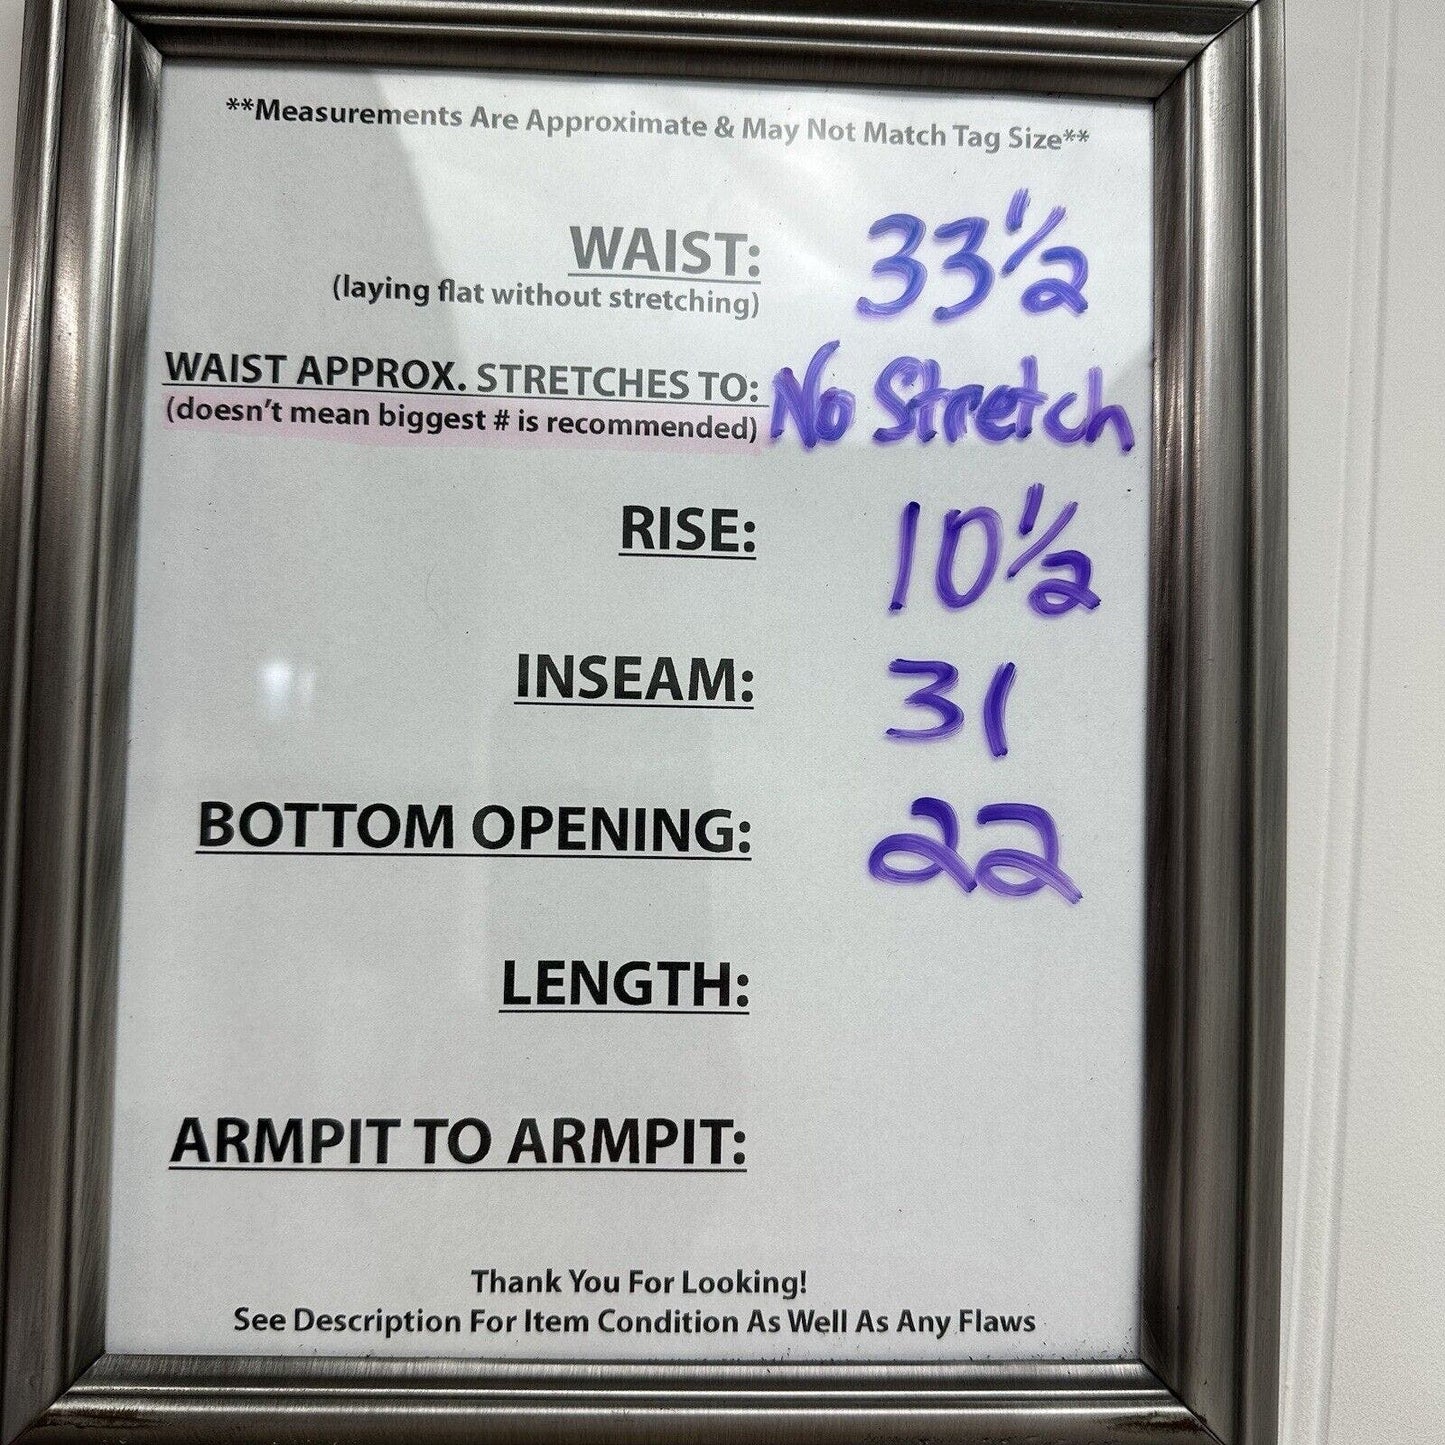 **Measurements Are Approximate & May Not Match Tag Size**
WAIST: 33 1/2
(laying flat without stretching)
WAIST APPROX. STRETCHES TO: No Stretch
(doesn't mean biggest # is recommended)
RISE: 10 1/2
INSEAM: 31
BOTTOM OPENING: 22
LENGTH:
ARMPIT TO ARMPIT:
Thank You For Looking!
See Description For Item Condition As Well As Any Flaws